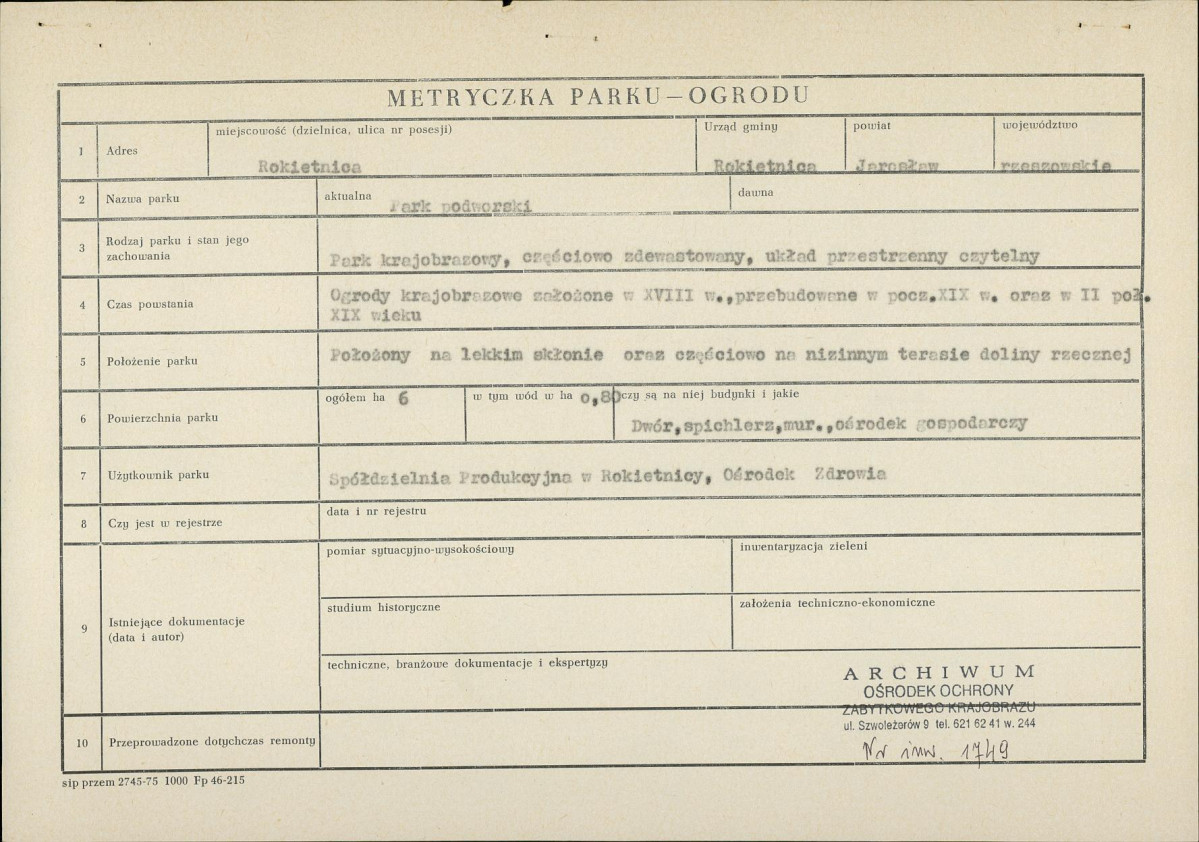 METRYCZKA PARKU – OGRODU
1 Adres
miejscowość (dzielnica, ulica nr posesji)
Rokietnica
Urząd gminy
Rokietnica
powiat
Jarosław
województwo
rzeszowskie
2 Nazwa parku
aktualna Park podworski
dawna
3 Rodzaj parku i stan jego
zachowania
Park krajobrazowy, częściowo zdewastowany, układ przestrzenny czytelny
4 Czas powstania
Ogrody krajobrazowe założone w XVIII w.,przebudowane w pocz.XIX w. oraz w II poł.
XIX wieku
5 Położenie parku
Położony na lekkim skłonie oraz częściowo na nizinnym terasie doliny rzecznej
6 Powierzchnia parku
ogółem ha 6
w tym wód w ha 0,80
czy są na niej budynki i jakie
Dwór,spichlerz,mur.,ośrodek gospodarczy
7 Użytkownik parku
Spółdzielnia Produkcyjna w Rokietnicy, Ośrodek Zdrowia
8 Czy jest w rejestrze
data i nr rejestru
9 Istniejące dokumentacje
(data i autor)
pomiar sytuacyjno-wysokościowy
inwentaryzacja zieleni
studium historyczne
założenia techniczno-ekonomiczne
techniczne, branżowe dokumentacje i ekspertyzy
ARCHIWUM
OŚRODEK OCHRONY
ZABYTKOWEGO KRAJOBRAZU
ul. Szwoleżerów 9 tel. 621 62 41 w. 244
Nr inw. 1749
10 Przeprowadzone dotychczas remonty
sip przem 2745-75 1000 Fp 46-215